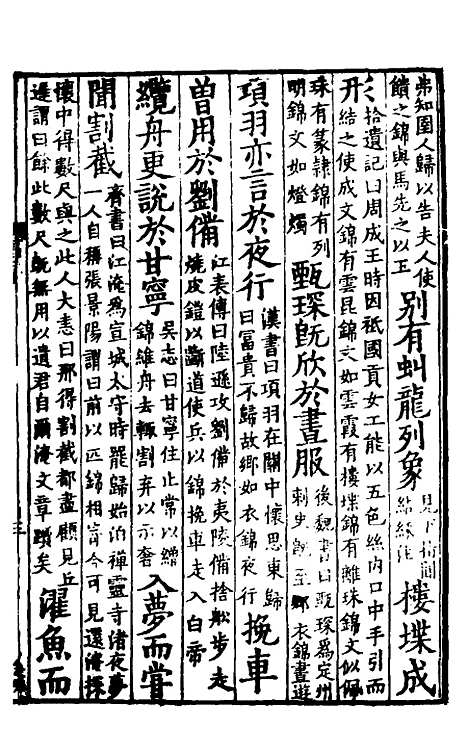 弗知圉人歸以告夫人使
饋之錦與馬先之以玉
别有虬龍列象
見下拾遺
樓堞成
拾遺記曰周成王時因祗國貢女工能以五色絲内口中手引而
結之使成文錦有雲昆錦文如雲霞有樓堞錦有雜珠錦文似佩
珠有篆隷錦有列
明錦文如燈燭
甄琛既欣於晝服
後魏書曰甄琛爲定州
刺史既至鄉衣錦晝遊
項羽亦言於夜行
漢書曰項羽在關中懷思東歸
曰富貴不歸故鄉如衣錦夜行
挽車
曽用於劉備
江表傳曰陸遜攻劉備於夷陵備捨舩步走
燒皮鎧以斷道使兵以錦挽車走入白帝
纜舟更說於甘寧
吳志曰甘寧住止常以繒
錦維舟去輒割弃以示奢
入夢而嘗
聞割截
齊書曰江淹爲宣城太守時罷歸始泊禪靈寺渚夜夢
一人自稱張景陽謂曰前以匹錦相寄今可見還淹探
懷中得數尺與之此人大恚曰那得割截都盡顧見丘
遲謂曰餘此數尺既無用以遺君自爾淹文章躓矣
濯魚而
三